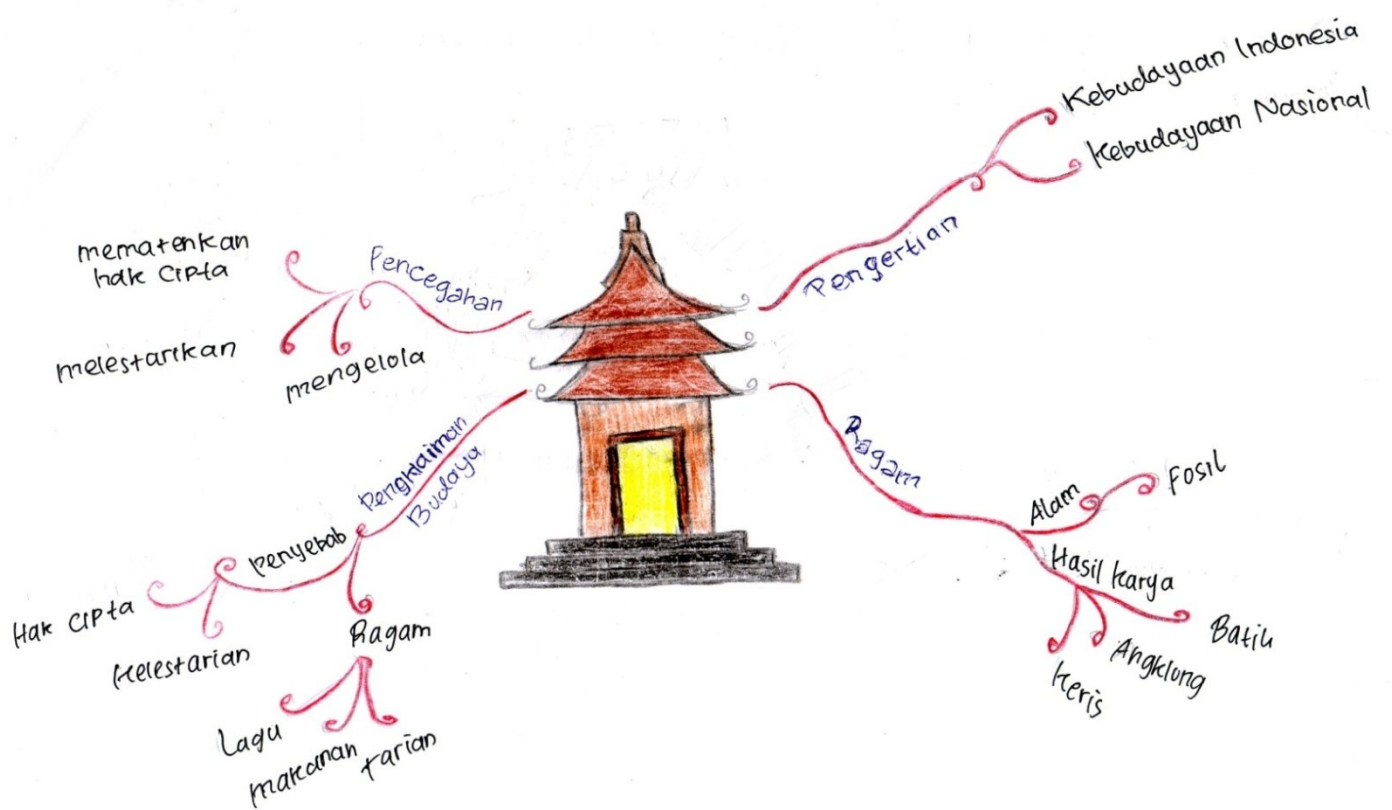 Kebudayaan Indonesia
Kebudayaan Nasional
Pengertian
Pencegahan
mematenkan
hak cipta
melestarikan
mengelola
Pengklaiman
Budaya
penyebab
Hak cipta
Kelestarian
Ragam
Lagu
makanan
tarian
Ragam
Alam
Fosil
Hasil karya
Batik
Angklung
Keris